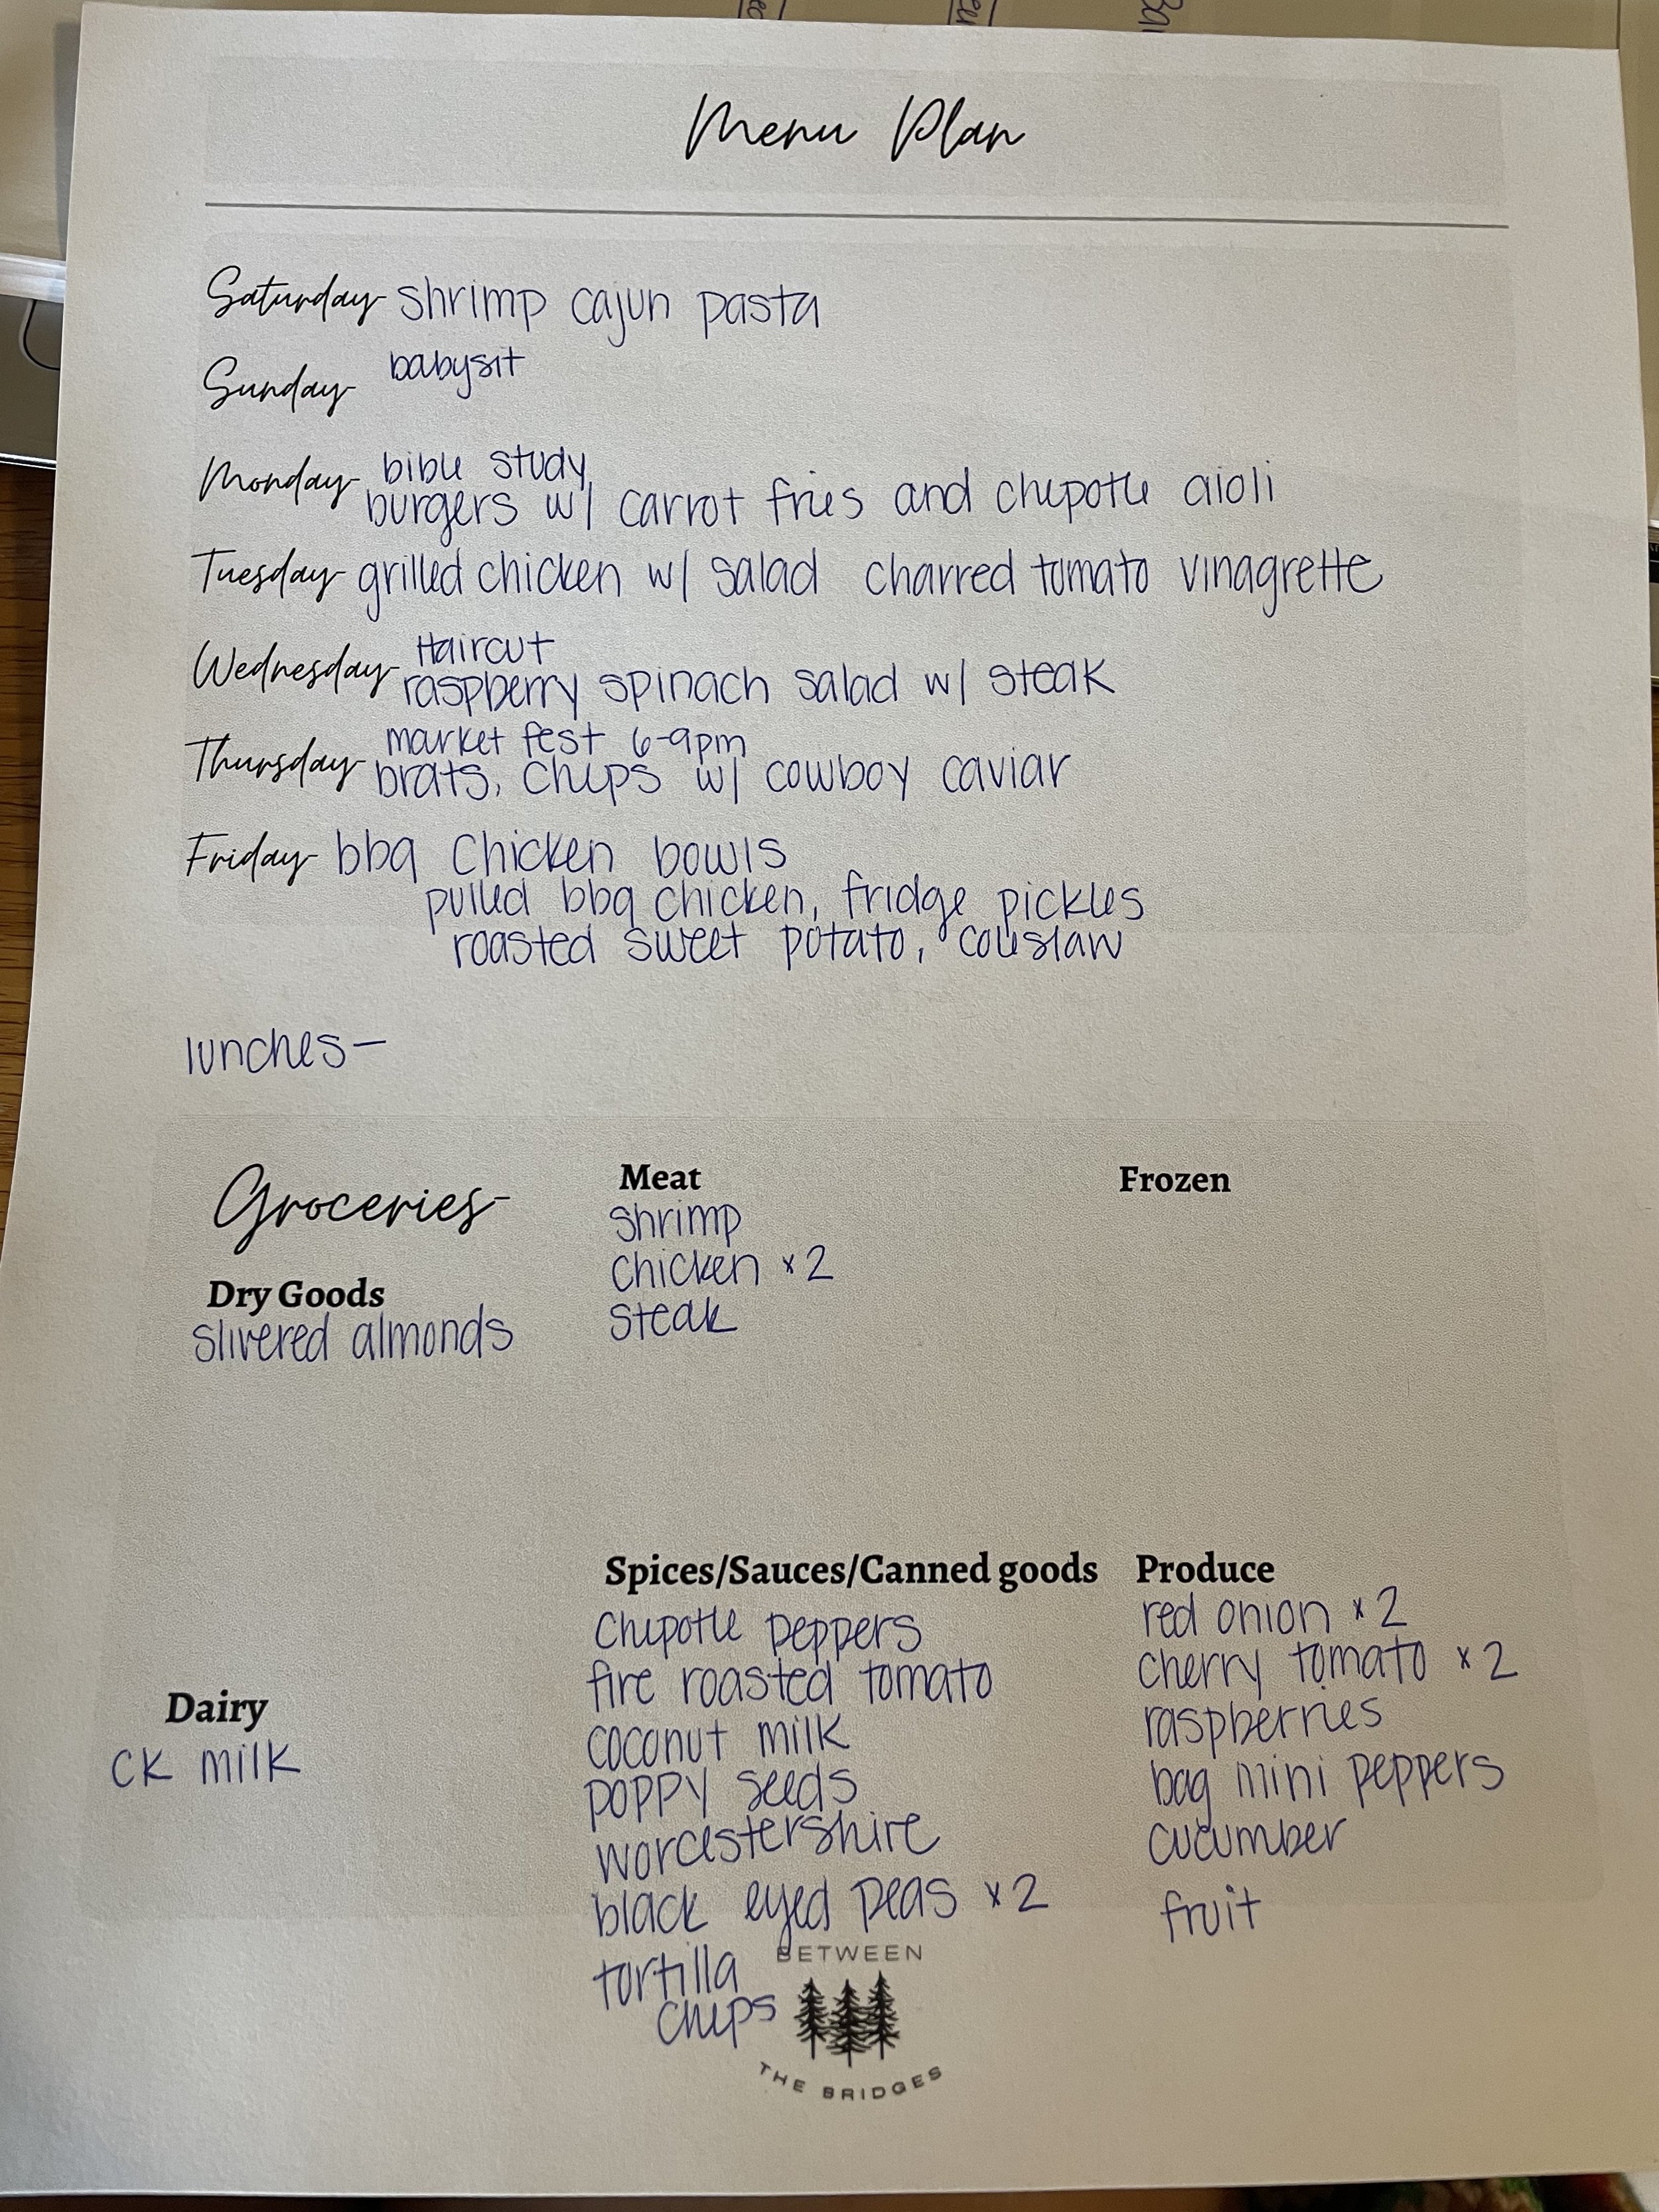 Menu Plan
Saturday- shrimp cajun pasta
Sunday- babysit
Monday- bible study
burgers w/ carrot fries and chipotle aioli
Tuesday- grilled chicken w/ salad charred tomato vinagrette
Wednesday- Haircut
raspberry spinach salad w/ steak
Thursday- market fest 6-9pm
brats, chips w/ cowboy caviar
Friday- bbq chicken bowls
pulled bbq chicken, fridge pickles
roasted sweet potato, coleslaw
lunches-
Groceries-
Dry Goods
slivered almonds
Meat
shrimp
chicken x2
steak
Frozen
Dairy
ck milk
Spices/Sauces/Canned goods
chipotle peppers
fire roasted tomato
coconut milk
poppy seeds
worcestershire
black eyed peas x2
tortilla
chips
Produce
red onion x2
cherry tomato x2
raspberries
bag mini peppers
cucumber
fruit
BETWEEN
THE BRIDGES